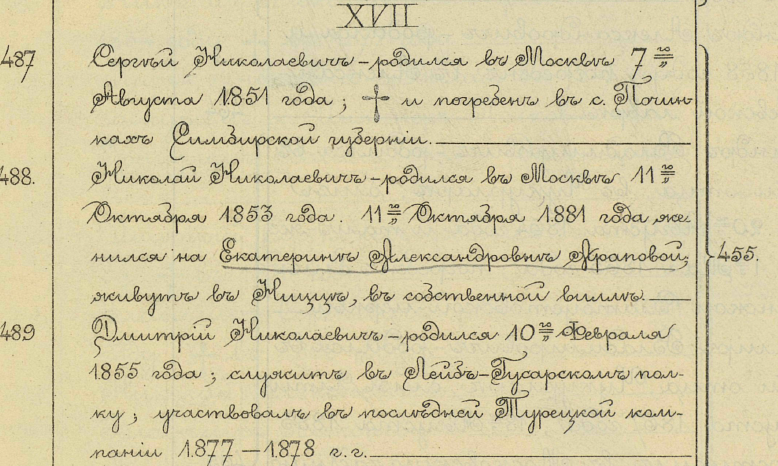 XVII
487 Сергѣй Николаевичъ – родился въ Москвѣ 7го
Августа 1851 года; † и погребенъ въ с. Почин-
кахъ Симбирской губерніи.
488. Николай Николаевичъ – родился въ Москвѣ 11го
Октября 1853 года. 11го Октября 1881 года же-
нился на Екатеринѣ Александровнѣ Араповой;
455.
живутъ въ Ниццѣ, въ собственной виллѣ.
489 Дмитрій Николаевичъ – родился 10го Февраля
1855 года; служитъ въ Лейбъ-Гусарскомъ пол-
ку; участвовалъ въ послѣдней Турецкой ком-
паніи 1877 – 1878 г.г.